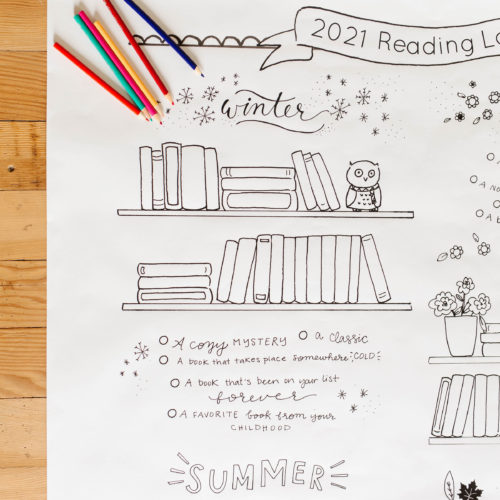 2021 Reading
winter
○ A cozy MYSTERY ○ a classic
○ A book that takes place somewhere COLD
○ A book that's been on your list
forever
○ A FAVORITE book from your
CHILDHOOD
SUMMER